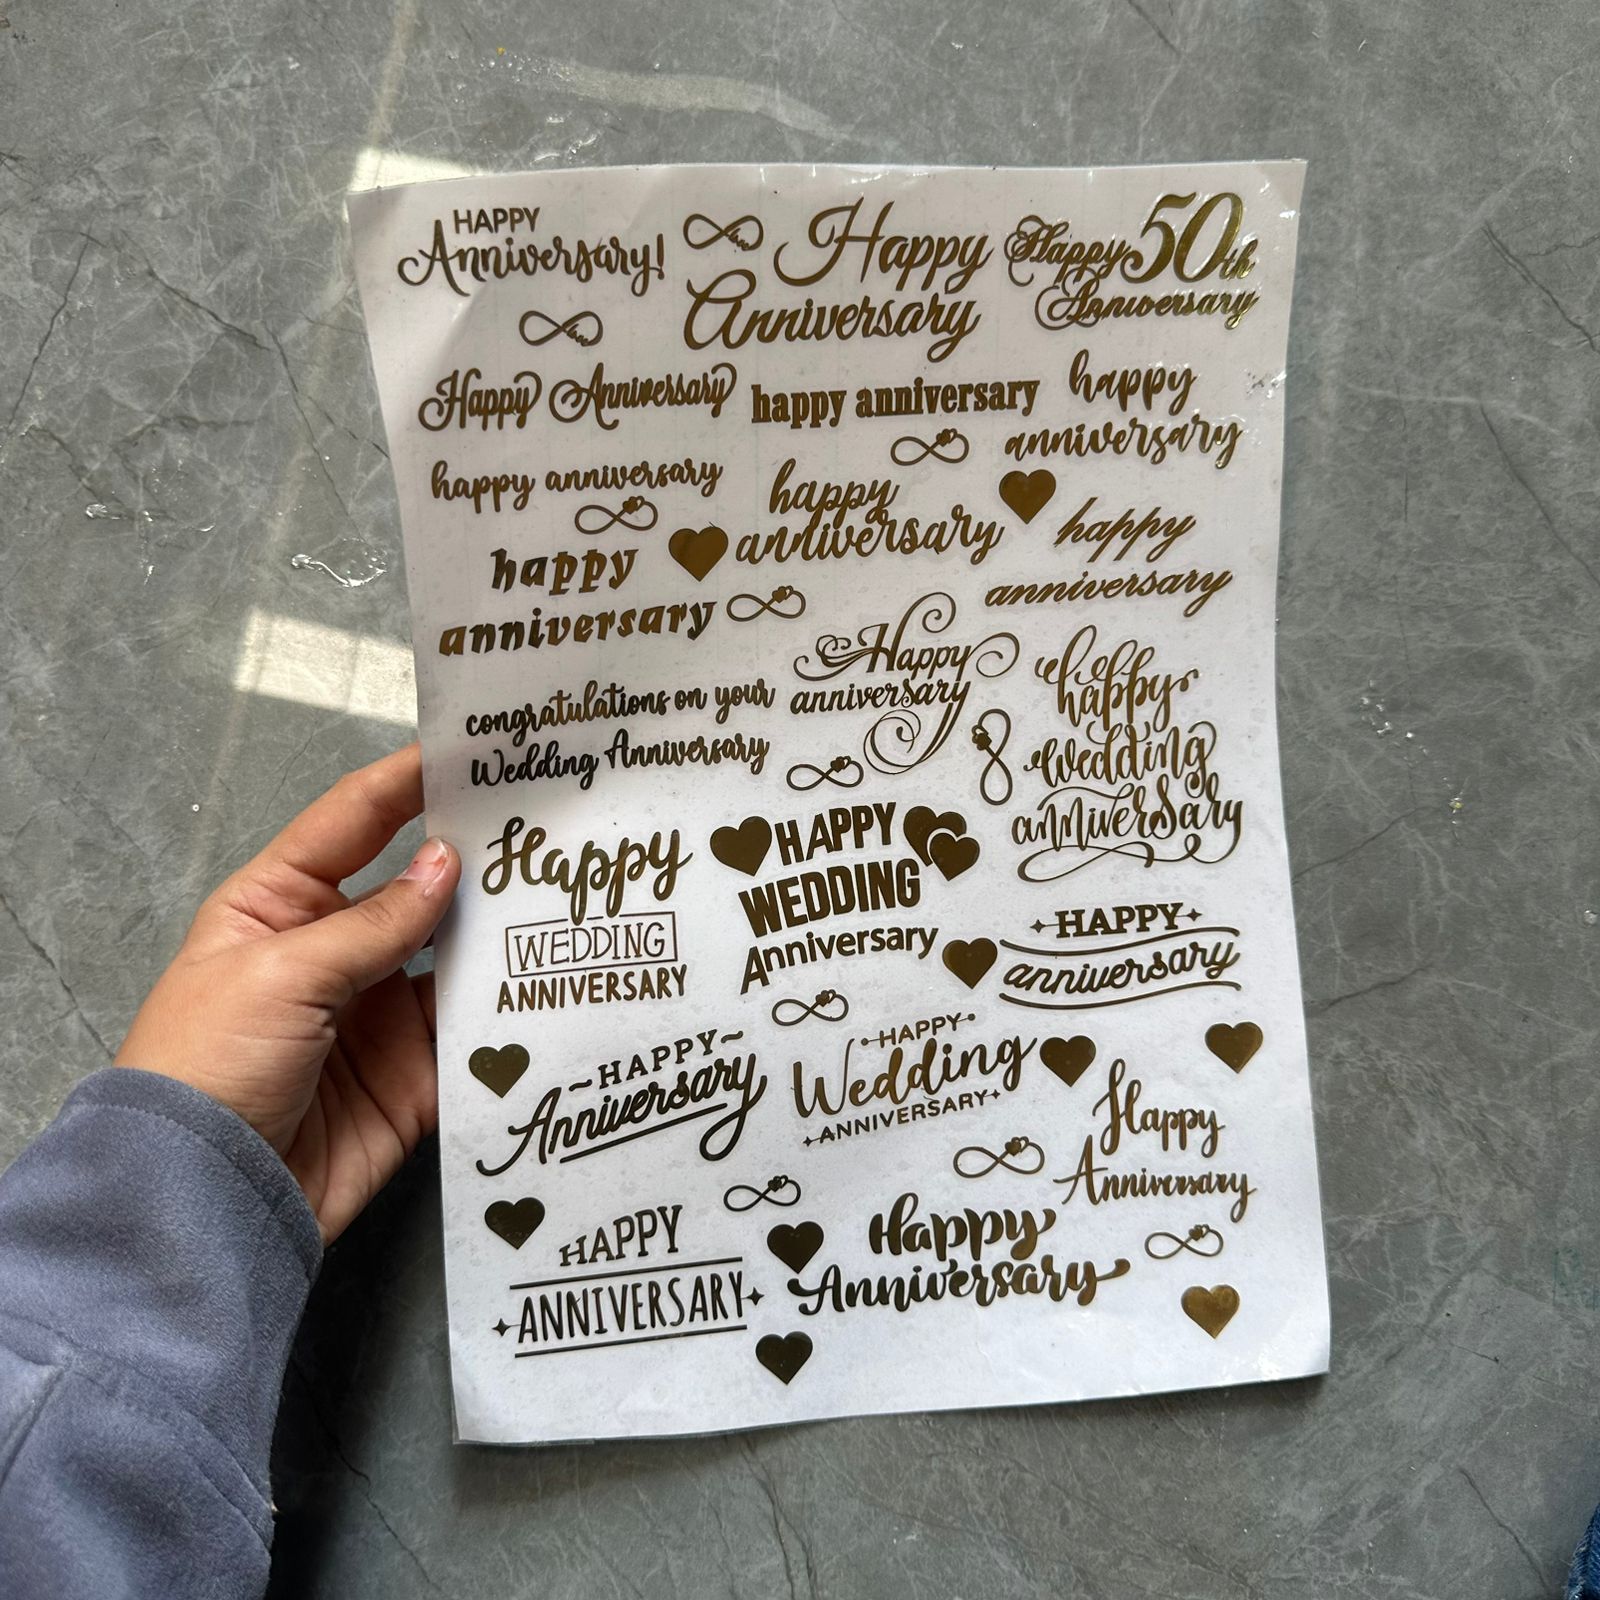 HAPPY
Anniversary!
Happy
Anniversary
Happy 50th
Anniversary
Happy Anniversary
happy anniversary
happy
anniversary
happy anniversary
happy
anniversary
happy
anniversary
happy
anniversary
congratulations on your
Wedding Anniversary
Happy
anniversary
happy
wedding
anniversary
Happy
WEDDING
ANNIVERSARY
HAPPY
WEDDING
Anniversary
HAPPY
anniversary
~HAPPY~
Anniversary
HAPPY
Wedding
ANNIVERSARY
Happy
Anniversary
HAPPY
ANNIVERSARY
Happy
Anniversary